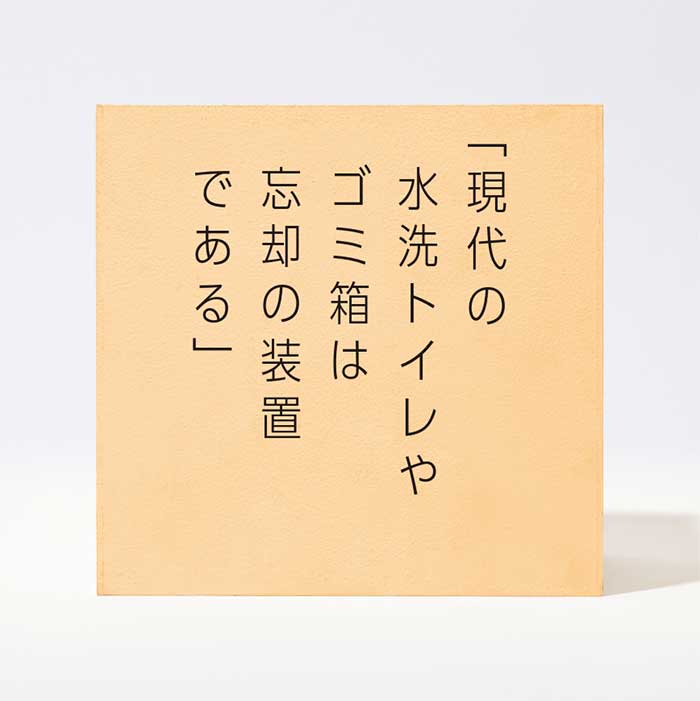 「現代の
水洗トイレや
ゴミ箱は
忘却の装置
である」